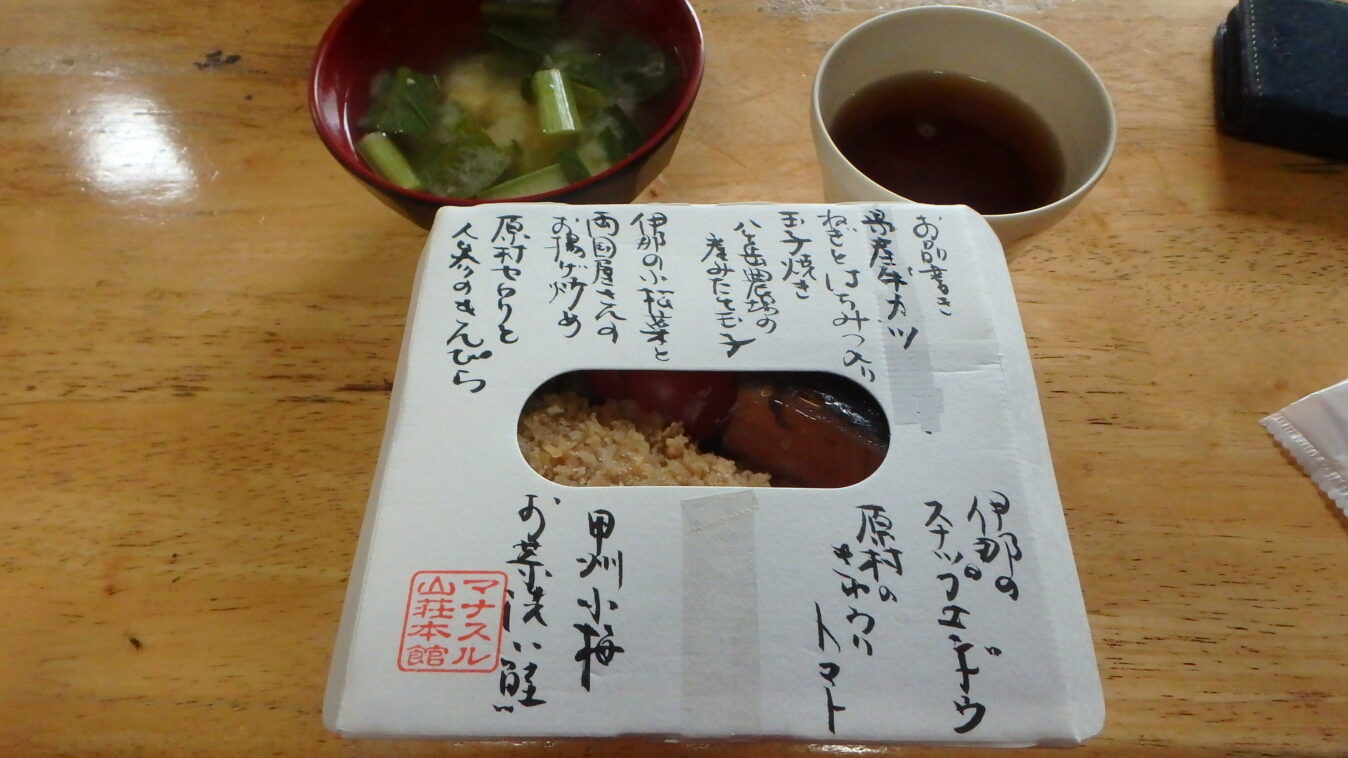 お品書き
県産牛カツ
ねぎとはちみつ入り
玉子焼き
八ヶ岳農場の
産みたて玉子
伊那の小松菜と
両国屋さんの
お揚げ炒め
原村セロリと
人参のきんぴら
伊那の
スナップエンドウ
原村の
きゅうり
トマト
甲州小梅
お菜洗い鮭
マナスル
山荘本館